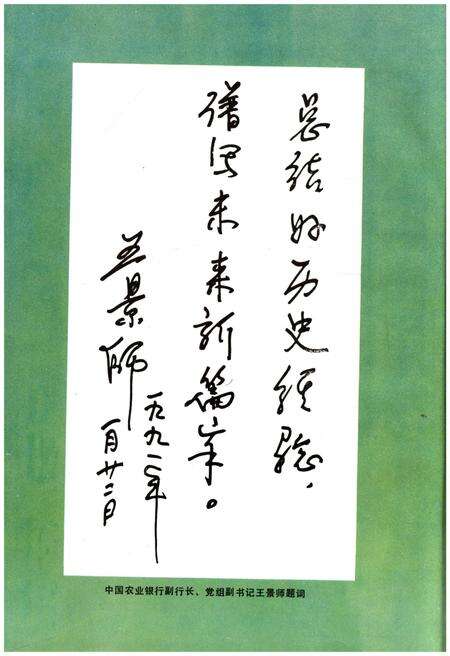 总结好历史经验，
谱写未来新篇章。
王景师
一九九二年
一月廿二日
中国农业银行副行长、党组副书记王景师题词